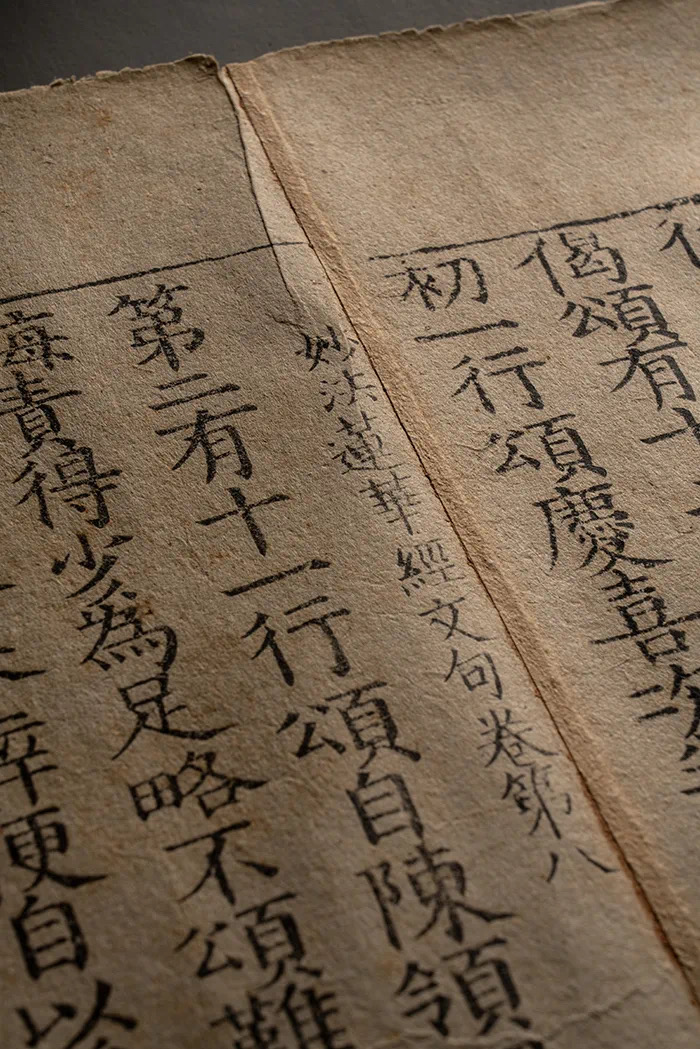 偈頌有十
初一行頌慶喜次
妙法蓮華經文句卷第八
第二有十一行頌自陳領
悔責得少為足略不頌難
自